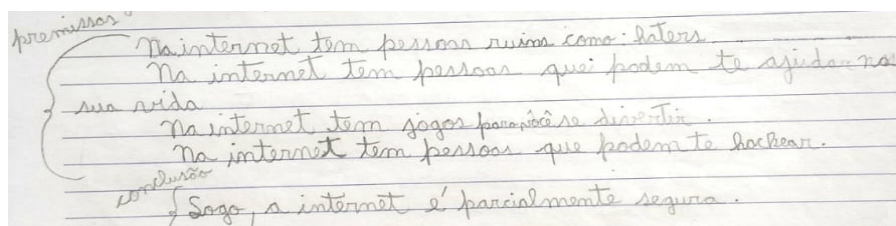 premissas
Na internet tem pessoas ruins como: haters
Na internet tem pessoas que podem te ajudar na
sua vida
Na internet tem jogos para você se divertir.
Na internet tem pessoas que podem te hackear.
conclusão
Logo, a internet é parcialmente segura.